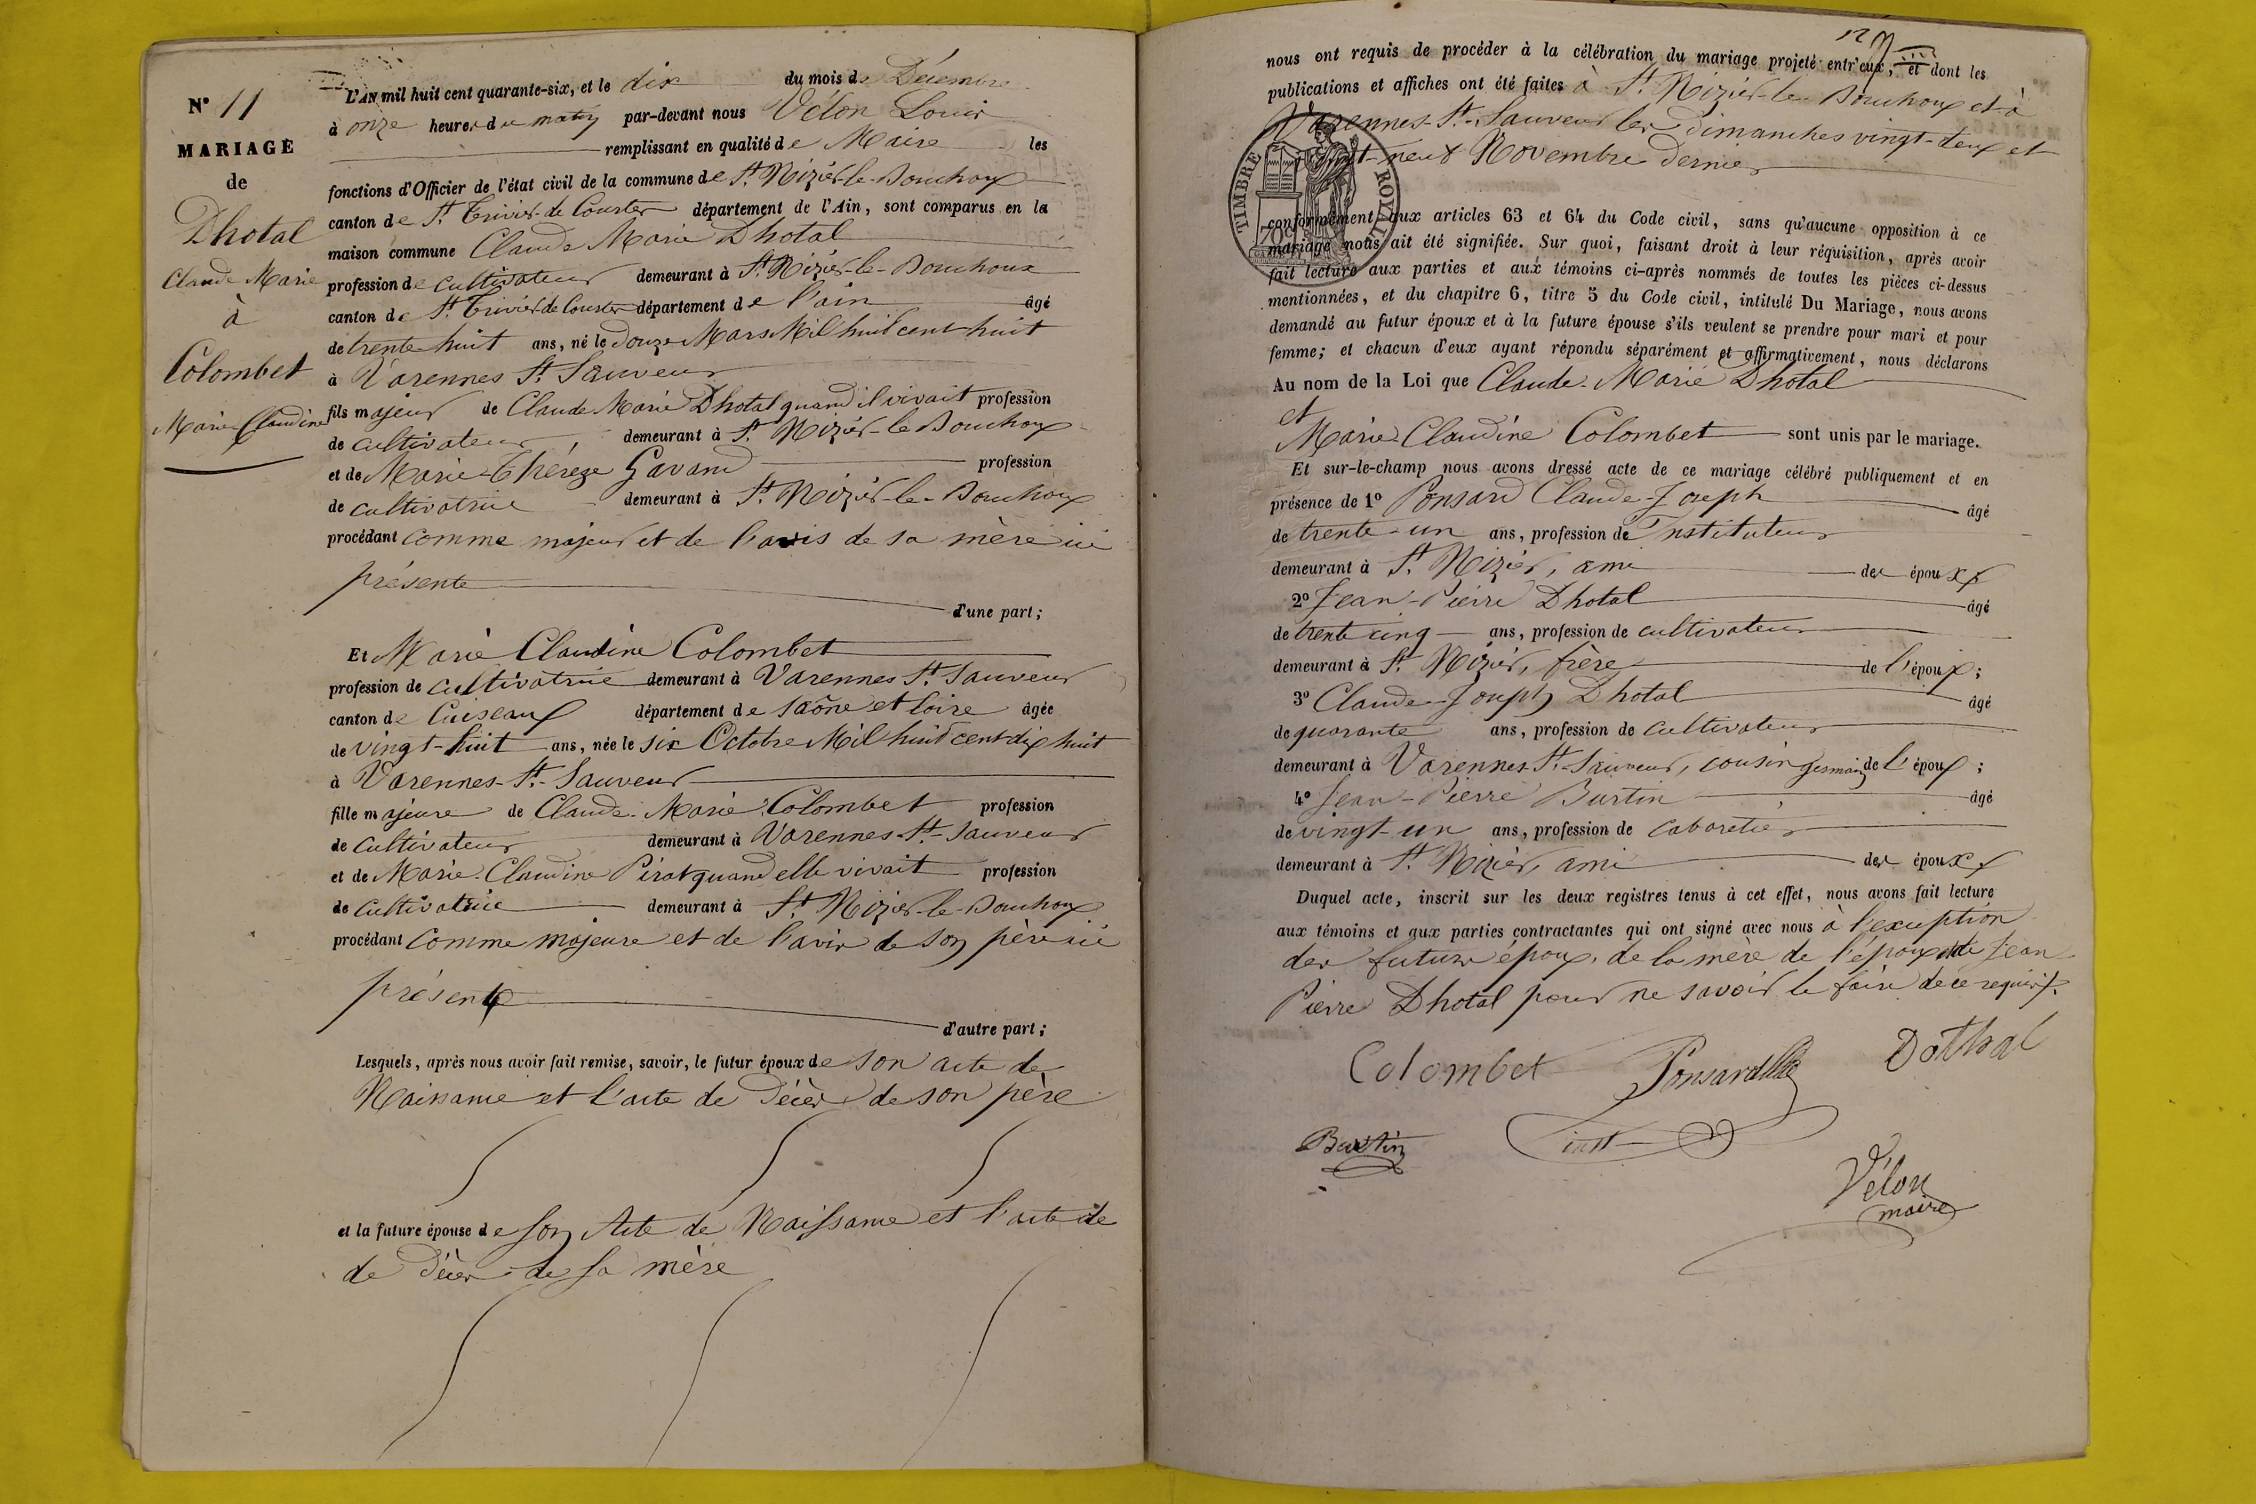 N° 11
MARIAGE
de
Dhotal
Claude Marie
à
Colombet
Marie Claudine
L'AN mil huit cent quarante-six, et le dix du mois de Décembre
à onze heures du matin par-devant nous Vélon Louis
remplissant en qualité de Maire les
fonctions d'Officier de l'état civil de la commune de St. Nizier-le-Bouchoux
canton de St. Trivier-de Courtes département de l'Ain, sont comparus en la
maison commune Claude Marie Dhotal
profession de cultivateur demeurant à St. Nizier-le-Bouchoux
canton de St. Trivier de Courtes département de l'ain âgé
de trente huit ans, né le douze Mars Mil huit cent huit
à Varennes St. Sauveur
fils majeur de Claude Marie Dhotal quand il vivait profession
de cultivateur, demeurant à St. Nizier-le Bouchoux
et de Marie-Thérèze Gavand profession
de cultivatrice demeurant à St. Nizier-le-Bouchoux
procédant comme majeur et de l'avis de sa mère ici
présente
d'une part;
Et Marie Claudine Colombet
profession de cultivatrice demeurant à Varennes St. Sauveur
canton de Cuiseaux département de saône et loire âgée
de vingt-huit ans, née le six Octobre Mil huit cent dix huit
à Varennes-St.-Sauveur
fille majeure de Claude Marie Colombet profession
de cultivateur demeurant à Varennes-St.-Sauveur
et de Marie Claudine Pirat quand elle vivait profession
de cultivatrice demeurant à St. Nizier-le-Bouchoux
procédant comme majeure et de l'avis de son père ici
présent
d'autre part;
Lesquels, après nous avoir fait remise, savoir, le futur époux de son acte de
Naissance et l'acte de Décès de son père
et la future épouse de son Acte de Naissance et l'acte de
de Décès de sa mère
nous ont requis de procéder à la célébration du mariage projeté entr'eux, et dont les
publications et affiches ont été faites à St. Nizier-le-Bouchoux et à
Varennes-St.-Sauveur les dimanches vingt-deux et
vingt-neuf Novembre dernier
TIMBRE ROYAL
conformément aux articles 63 et 64 du Code civil, sans qu'aucune opposition à ce
mariage nous ait été signifiée. Sur quoi, faisant droit à leur réquisition, après avoir
fait lecture aux parties et aux témoins ci-après nommés de toutes les pièces ci-dessus
mentionnées, et du chapitre 6, titre 5 du Code civil, intitulé Du Mariage, nous avons
demandé au futur époux et à la future épouse s'ils veulent se prendre pour mari et pour
femme; et chacun d'eux ayant répondu séparément et affirmativement, nous déclarons
Au nom de la Loi que Claude Marie Dhotal
et
Marie Claudine Colombet sont unis par le mariage.
Et sur-le-champ nous avons dressé acte de ce mariage célébré publiquement et en
présence de 1° Ponsard Claude-Joseph âgé
de trente-un ans, profession de Instituteur
demeurant à St. Nizier, ami des époux;
2° Jean-Pierre Dhotal âgé
de trente cinq ans, profession de cultivateur
demeurant à St. Nizier, frère de l'époux;
3° Claude-Joseph Dhotal âgé
de quarante ans, profession de cultivateur
demeurant à Varennes-St.-Sauveur, cousin germain de l'époux;
4° Jean-Pierre Burtin âgé
de vingt-un ans, profession de cabaretier
demeurant à St. Nizier, ami des époux;
Duquel acte, inscrit sur les deux registres tenus à cet effet, nous avons fait lecture
aux témoins et aux parties contractantes qui ont signé avec nous à l'exception
des futurs époux, de la mère de l'époux et de Jean
Pierre Dhotal pour ne savoir le faire de ce requis.
Colombet Ponsard Dothal
inst
Burtin
Vélon
maire